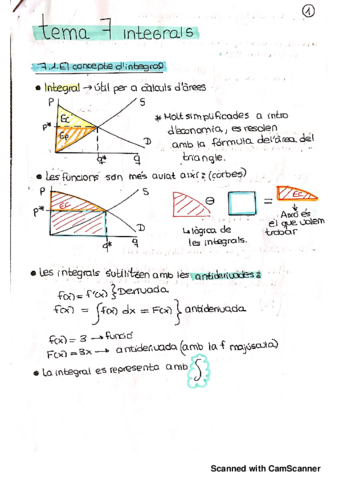 1
tema 7 integrals
7.1. El concepte d'integral
• Integral → útil per a càlculs d'àrees
P S
EC
P*
EP
D
q* q
* Molt simplificades a intro
d'economia, es resolen
amb la fórmula de l'àrea del
triangle.
• Les funcions són més aviat així: (corbes)
P S
EC
P*
D
q* q
⊖ =
EC
↳ lògica de
les integrals.
Això és
el que volem
trobar
• Les integrals s'utilitzen amb les antiderivades:
f(x) = f'(x) } Derivada
f(x) = ∫ f(x) dx = F(x) } antiderivada
f(x) = 3 → funció
F(x) = 3x → antiderivada (amb la f majúscula)
• La integral es representa amb ∫
Scanned with CamScanner